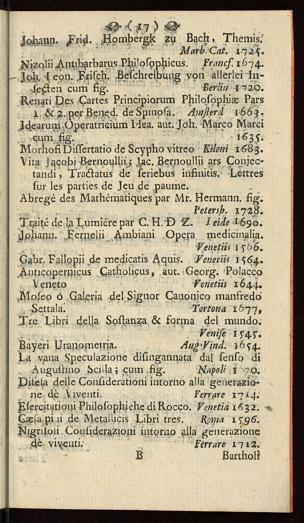 (17)
Johann. Frid. Hombergk zu Bach, Themis.
Marb. Cat. 1725.
Nizolii Antibarbarus Philosophicus. Francf. 1674.
Joh. Leon. Frisch. Beschreibung von allerlei In-
secten cum fig. Berlin 1720.
Renati Des Cartes Principiorum Philosophiæ Pars
1. & 2. per Bened. de Spinosa. Amsterd 1663.
Idearum Operatricium Idea. aut. Joh. Marco Marci
cum fig. 1635.
Morhofi Dissertatio de Scypho vitreo Kiloni 1683.
Vita Jacobi Bernoullii; Jac. Bernoullii ars Conjec-
tandi, Tractatus de seriebus infinitis. Lettres
sur les parties de Jeu de paume.
Abregé des Mathématiques par Mr. Hermann. fig.
Petersb. 1728.
Traité de la Lumiére par C. H. D. Z. Leide 1690.
Johann. Fernelii Ambiani Opera medicinalia.
Venetiis 1566.
Gabr. Fallopii de medicatis Aquis. Veneriis 1564.
Anticopernicus Catholicus, aut. Georg. Polacco
Veneto Venetiis 1644.
Moseo ò Galeria del Signor Canonico manfredo
Settala. Tortona 1677,
Tre Libri della Sostanza & forma del mundo.
Venise 1545.
Bayeri Uranometria. Aug. Vind. 1654.
La vana Speculazione disingannata dal senso di
Augustino Scilla; cum fig. Napoli
Difesa delle Considerationi intorno alla generazio-
ne dè Viventi. Ferrare 1714.
Esercitationi Philosophiche di Rocco. Venetia 1632.
Cæsalpini de Metallicis Libri tres. Roma 1596.
Nigrisoli Considerazioni intorno alla generazione
dè viventi. Ferrare 1712.
B Bartholi